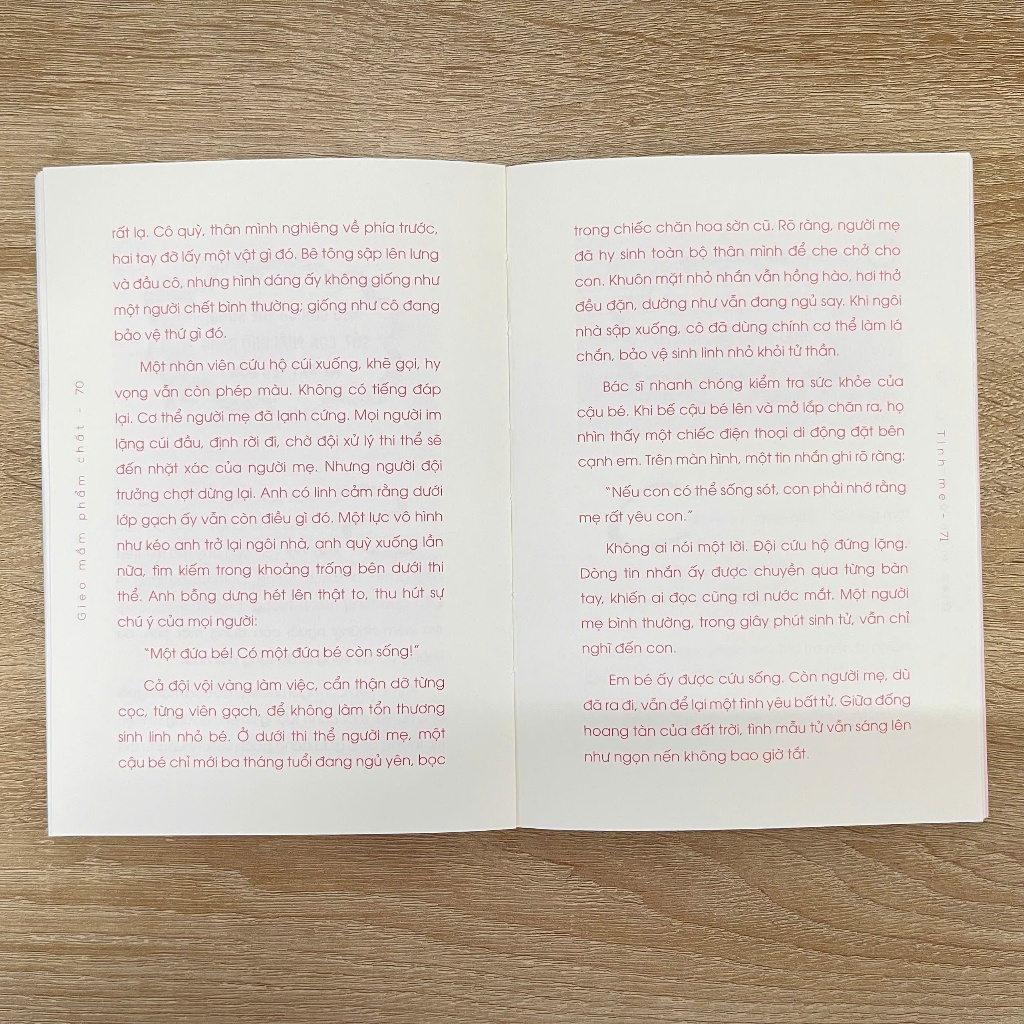 rất lạ. Cô quỳ, thân mình nghiêng về phía trước,
hai tay đỡ lấy một vật gì đó. Bê tông sập lên lưng
và đầu cô, nhưng hình dáng ấy không giống như
một người chết bình thường; giống như cô đang
bảo vệ thứ gì đó.
Một nhân viên cứu hộ cúi xuống, khẽ gọi, hy
vọng vẫn còn phép màu. Không có tiếng đáp
lại. Cơ thể người mẹ đã lạnh cứng. Mọi người im
lặng cúi đầu, định rời đi, chờ đội xử lý thi thể sẽ
đến nhặt xác của người mẹ. Nhưng người đội
trưởng chợt dừng lại. Anh có linh cảm rằng dưới
lớp gạch ấy vẫn còn điều gì đó. Một lực vô hình
như kéo anh trở lại ngôi nhà, anh quỳ xuống lần
nữa, tìm kiếm trong khoảng trống bên dưới thi
thể. Anh bỗng dưng hét lên thật to, thu hút sự
chú ý của mọi người:
“Một đứa bé! Có một đứa bé còn sống!”
Cả đội vội vàng làm việc, cẩn thận dỡ từng
cọc, từng viên gạch, để không làm tổn thương
sinh linh nhỏ bé. Ở dưới thi thể người mẹ, một
cậu bé chỉ mới ba tháng tuổi đang ngủ yên, bọc
Gieo mầm phẩm chất - 70
trong chiếc chăn hoa sờn cũ. Rõ ràng, người mẹ
đã hy sinh toàn bộ thân mình để che chở cho
con. Khuôn mặt nhỏ nhắn vẫn hồng hào, hơi thở
đều đặn, dường như vẫn đang ngủ say. Khi ngôi
nhà sập xuống, cô đã dùng chính cơ thể làm lá
chắn, bảo vệ sinh linh nhỏ khỏi tử thần.
Bác sĩ nhanh chóng kiểm tra sức khỏe của
cậu bé. Khi bế cậu bé lên và mở lắp chăn ra, họ
nhìn thấy một chiếc điện thoại di động đặt bên
cạnh em. Trên màn hình, một tin nhắn ghi rõ ràng:
“Nếu con có thể sống sót, con phải nhớ rằng
mẹ rất yêu con.”
Không ai nói một lời. Đội cứu hộ đứng lặng.
Dòng tin nhắn ấy được chuyền qua từng bàn
tay, khiến ai đọc cũng rơi nước mắt. Một người
mẹ bình thường, trong giây phút sinh tử, vẫn chỉ
nghĩ đến con.
Em bé ấy được cứu sống. Còn người mẹ, dù
đã ra đi, vẫn để lại một tình yêu bất tử. Giữa đống
hoang tàn của đất trời, tình mẫu tử vẫn sáng lên
như ngọn nến không bao giờ tắt.
Tình mẹ - 71